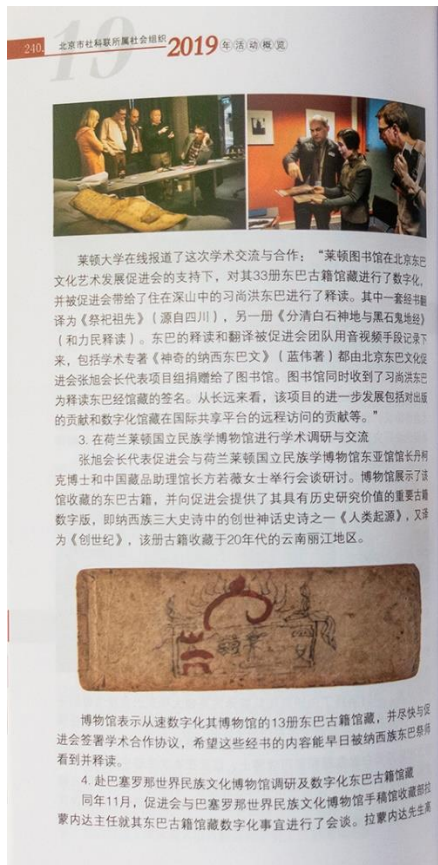 240
北京市社科联所属社会组织
2019年活动概览
莱顿大学在线报道了这次学术交流与合作：“莱顿图书馆在北京东巴
文化艺术发展促进会的支持下，对其33册东巴古籍馆藏进行了数字化，
并被促进会带给了住在深山中的习尚洪东巴进行了释读。其中一套经书翻
译为《祭祀祖先》（源自四川），另一册《分清白石神地与黑石鬼地经》
（和力民释读）。东巴的释读和翻译被促进会团队用音视频手段记录下
来，包括学术专著《神奇的纳西东巴文》（蓝伟著）都由北京东巴文化促
进会张旭会长代表项目组捐赠给了图书馆。图书馆同时收到了习尚洪东巴
为释读东巴经馆藏的签名。从长远来看，该项目的进一步发展包括对出版
的贡献和数字化馆藏在国际共享平台的远程访问的贡献等。”
3. 在荷兰莱顿国立民族学博物馆进行学术调研与交流
张旭会长代表促进会与荷兰莱顿国立民族学博物馆东亚馆馆长丹柯
克博士和中国藏品助理馆长方若薇女士举行会谈研讨。博物馆展示了该
馆收藏的东巴古籍，并向促进会提供了其具有历史研究价值的重要古籍
数字版，即纳西族三大史诗中的创世神话史诗之一《人类起源》，又译
为《创世纪》，该册古籍收藏于20年代的云南丽江地区。
博物馆表示从速数字化其博物馆的13册东巴古籍馆藏，并尽快与促
进会签署学术合作协议，希望这些经书的内容能早日被纳西族东巴祭师
看到并释读。
4. 赴巴塞罗那世界民族文化博物馆调研及数字化东巴古籍馆藏
同年11月，促进会与巴塞罗那世界民族文化博物馆手稿馆收藏部拉
蒙内达主任就其东巴古籍馆藏数字化事宜进行了会谈。拉蒙内达先生高